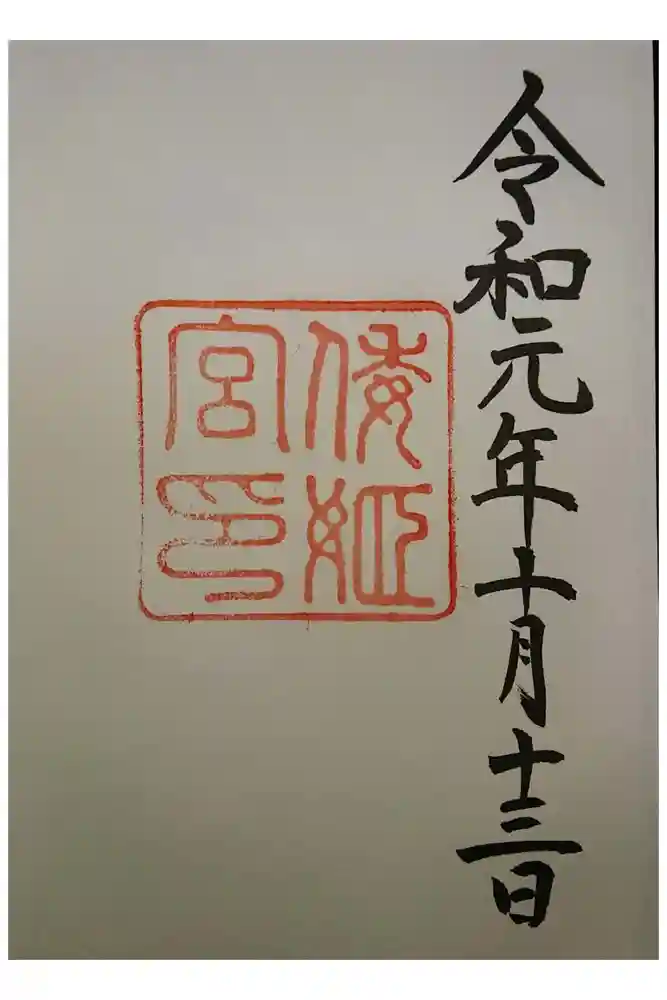 令和元年十一月十三日
倭姫
宮印